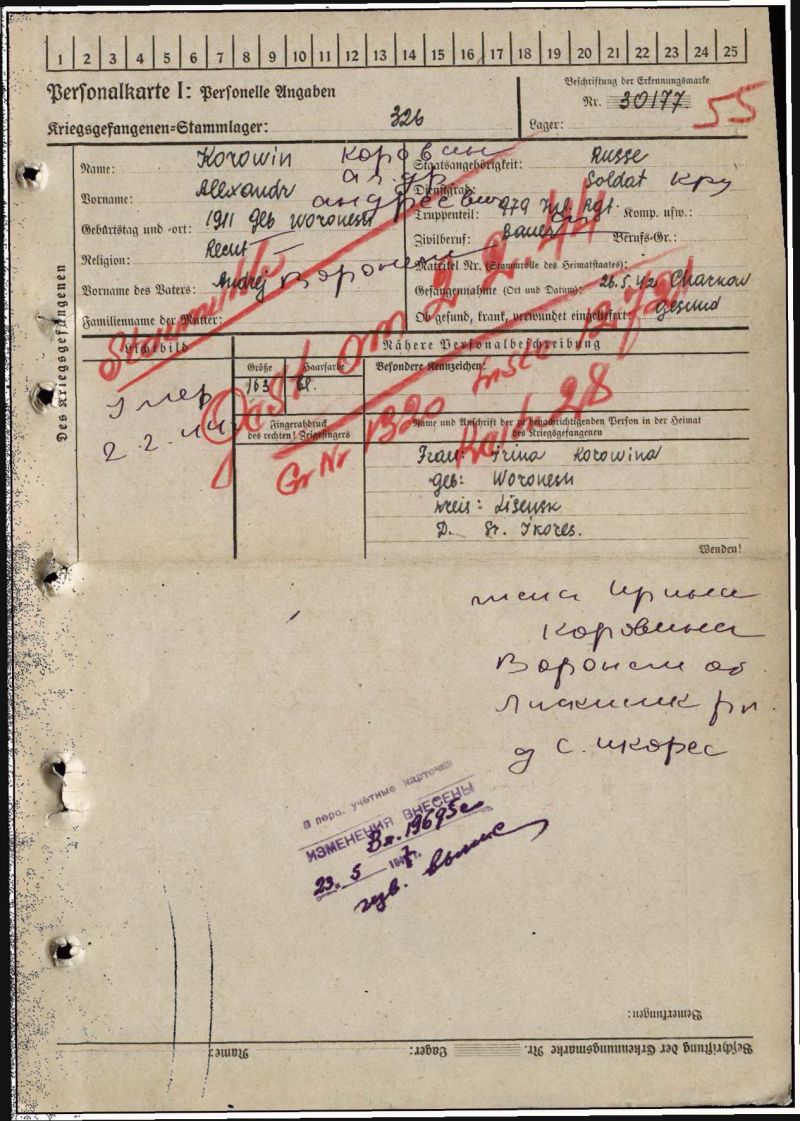 1 2 3 4 5 6 7 8 9 10 11 12 13 14 15 16 17 18 19 20 21 22 23 24 25
Personalkarte I: Personelle Angaben
Beschriftung der Erkennungsmarke
Nr. 30177
55
Kriegsgefangenen-Stammlager: 326
Lager:
Des Kriegsgefangenen
Name: Korowin Коровин
Staatsangehörigkeit: Russe
Vorname: Alexandr
Dienstgrad: Soldat
Андреевич
Truppenteil: 979 Komp. usw.:
Geburtstag und -ort: 1911 Geb Woronesh
Zivilberuf: Bauer Berufs-Gr.:
Religion:
Matrikel Nr. (Stammrolle des Heimatstaates):
Vorname des Vaters: Andrej
Gefangennahme (Ort und Datum): 26.5.42 Charkow
Familienname der Mutter:
Ob gesund, krank, verwundet eingeliefert: gesund
Lichtbild
Nähere Personalbeschreibung
Größe
Haarfarbe
Besondere Kennzeichen:
163
Умер
2.2.44
Gest am 2.2.44
Gr Nr 1320
28
Fingerabdruck
des rechten! Zeigefingers
Name und Anschrift der zu benachrichtigenden Person in der Heimat
des Kriegsgefangenen
Frau: Irina Korowina
Geb: Woronesh
Kreis: Lisensk
D. St. Ikores.
Wenden!
жена Ирина
Коровина
Воронеж об
р н.
д с. икорес
В перс. учётные карточки
ИЗМЕНЕНИЯ ВНЕСЕНЫ
Вх. 19695с
23. 5 1947г.
Bemerkungen:
Beschriftung der Erkennungsmarke Nr. Lager: Name: